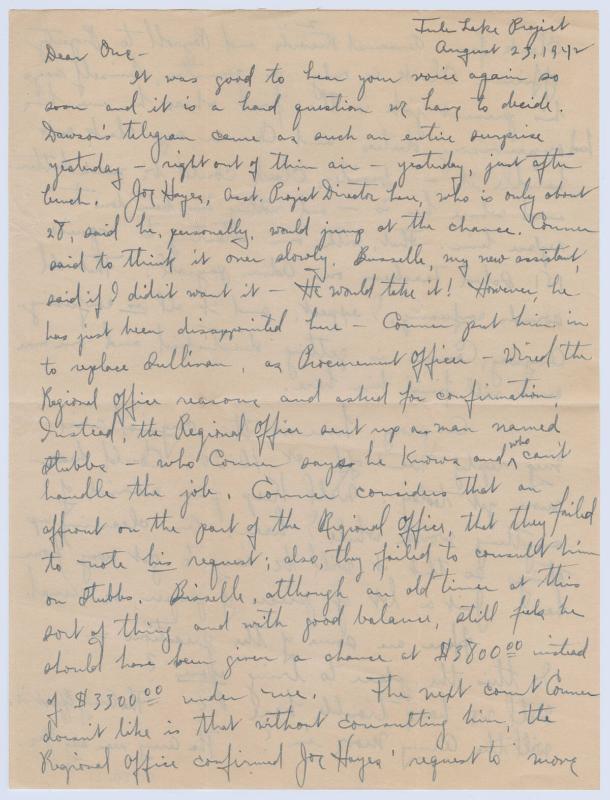 Tule Lake Project
August 23, 1942
Dear One -
It was good to hear your voice again so
soon and it is a hard question we have to decide.
Dawson's telegram came as such an entire surprise
yesterday - right out of thin air - yesterday, just after
lunch. Joe Hayes, asst. Project Director here, who is only about
28, said he, personally, would jump at the chance. Conner
said to think it over slowly. Bisselle, my new assistant,
said if I didn't want it - He would take it! However, he
has just been disappointed here - Conner put him in
to replace Sullivan, as Procurement Officer - Wired the
Regional Office reasons and asked for confirmation.
Instead, the Regional Office sent up a man named
Stubbs - who Conner says he knows and who can't
handle the job. Conner considers that an
affront on the part of the Regional Office, that they failed
to note his request; also, they failed to consult him
on Stubbs. Bisselle, although an old timer at this
sort of thing and with good balance, still feels he
should have been given a chance at $3800.00 instead
of $3300.00 under me. The next count Conner
doesn't like is that without consulting him, the
Regional Office confirmed Joe Hayes' request to move